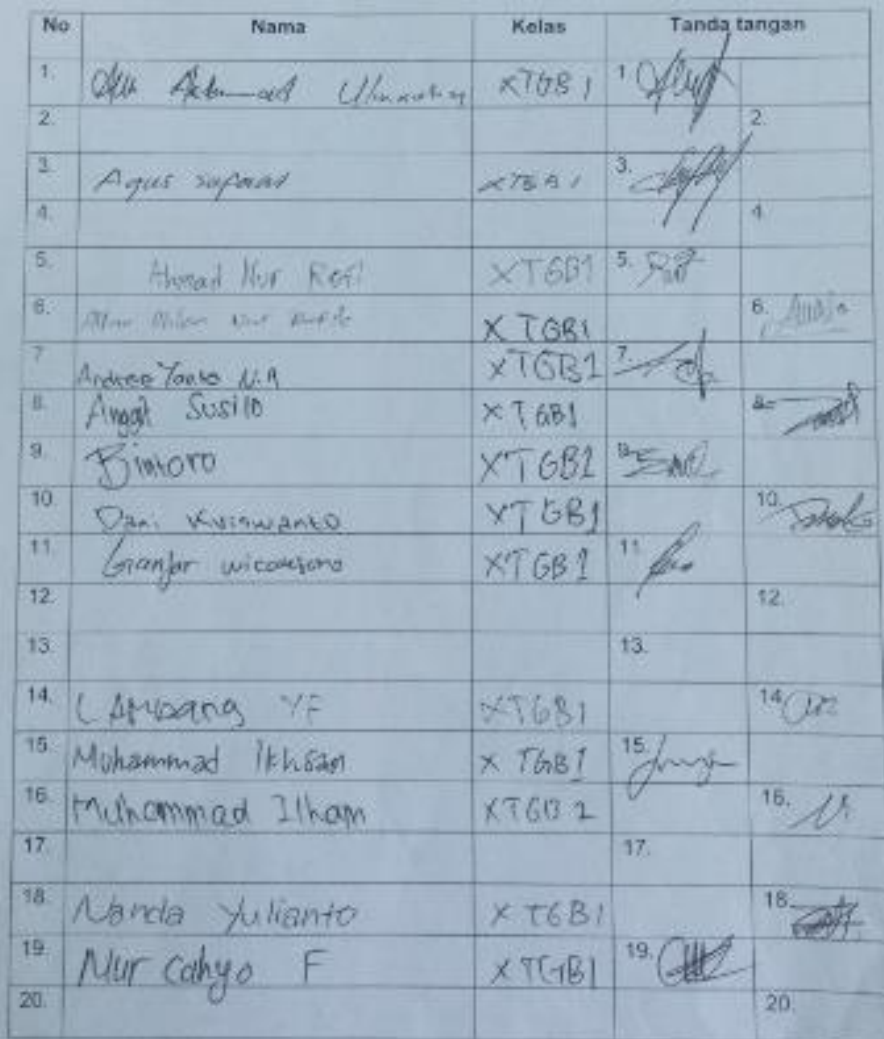 No Nama Kelas Tanda tangan
1. Achmad XTGB 1 1
2. 2.
3. Agus XTGB 1 3.
4. 4.
5. Ahmad Nur Rofi XTGB1 5.
6. Nur XTGB1 6.
7 Andree Yanto N.A XTGB1 7.
8. Anggit Susilo XTGB1 8.
9. Bintoro XTGB1 9.
10. Dani Kriswanto XTGB1 10.
11. Ganjar wicaksono XTGB1 11
12. 12.
13. 13.
14. LAMbang YF XTGB1 14
15 Muhammad Ikhsan X TGB1 15.
16. Muhammad Ilham XTGB 1 16.
17 17.
18 Nanda Yulianto X TGB1 18
19. Nur Cahyo F X TGB1 19.
20. 20.